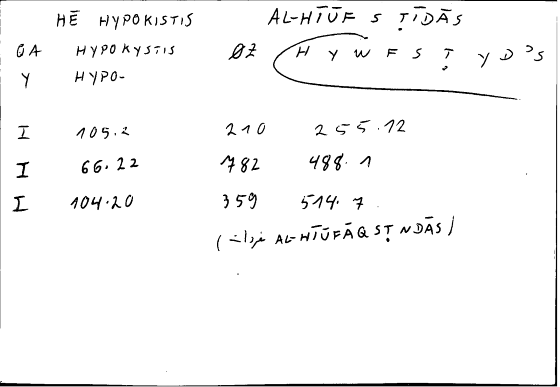 HĒ HYPOKISTIS AL-HĪŪF S ṬĪDĀS
GA HYPOKYSTIS ØZ H Y W F S Ṭ Y D ɔS
Y HYPO-
I 105.2 210 255.12
I 66.22 782 488.1
I 104.20 359 514.7
AL-HĪŪFĀQ SṬNDĀS)